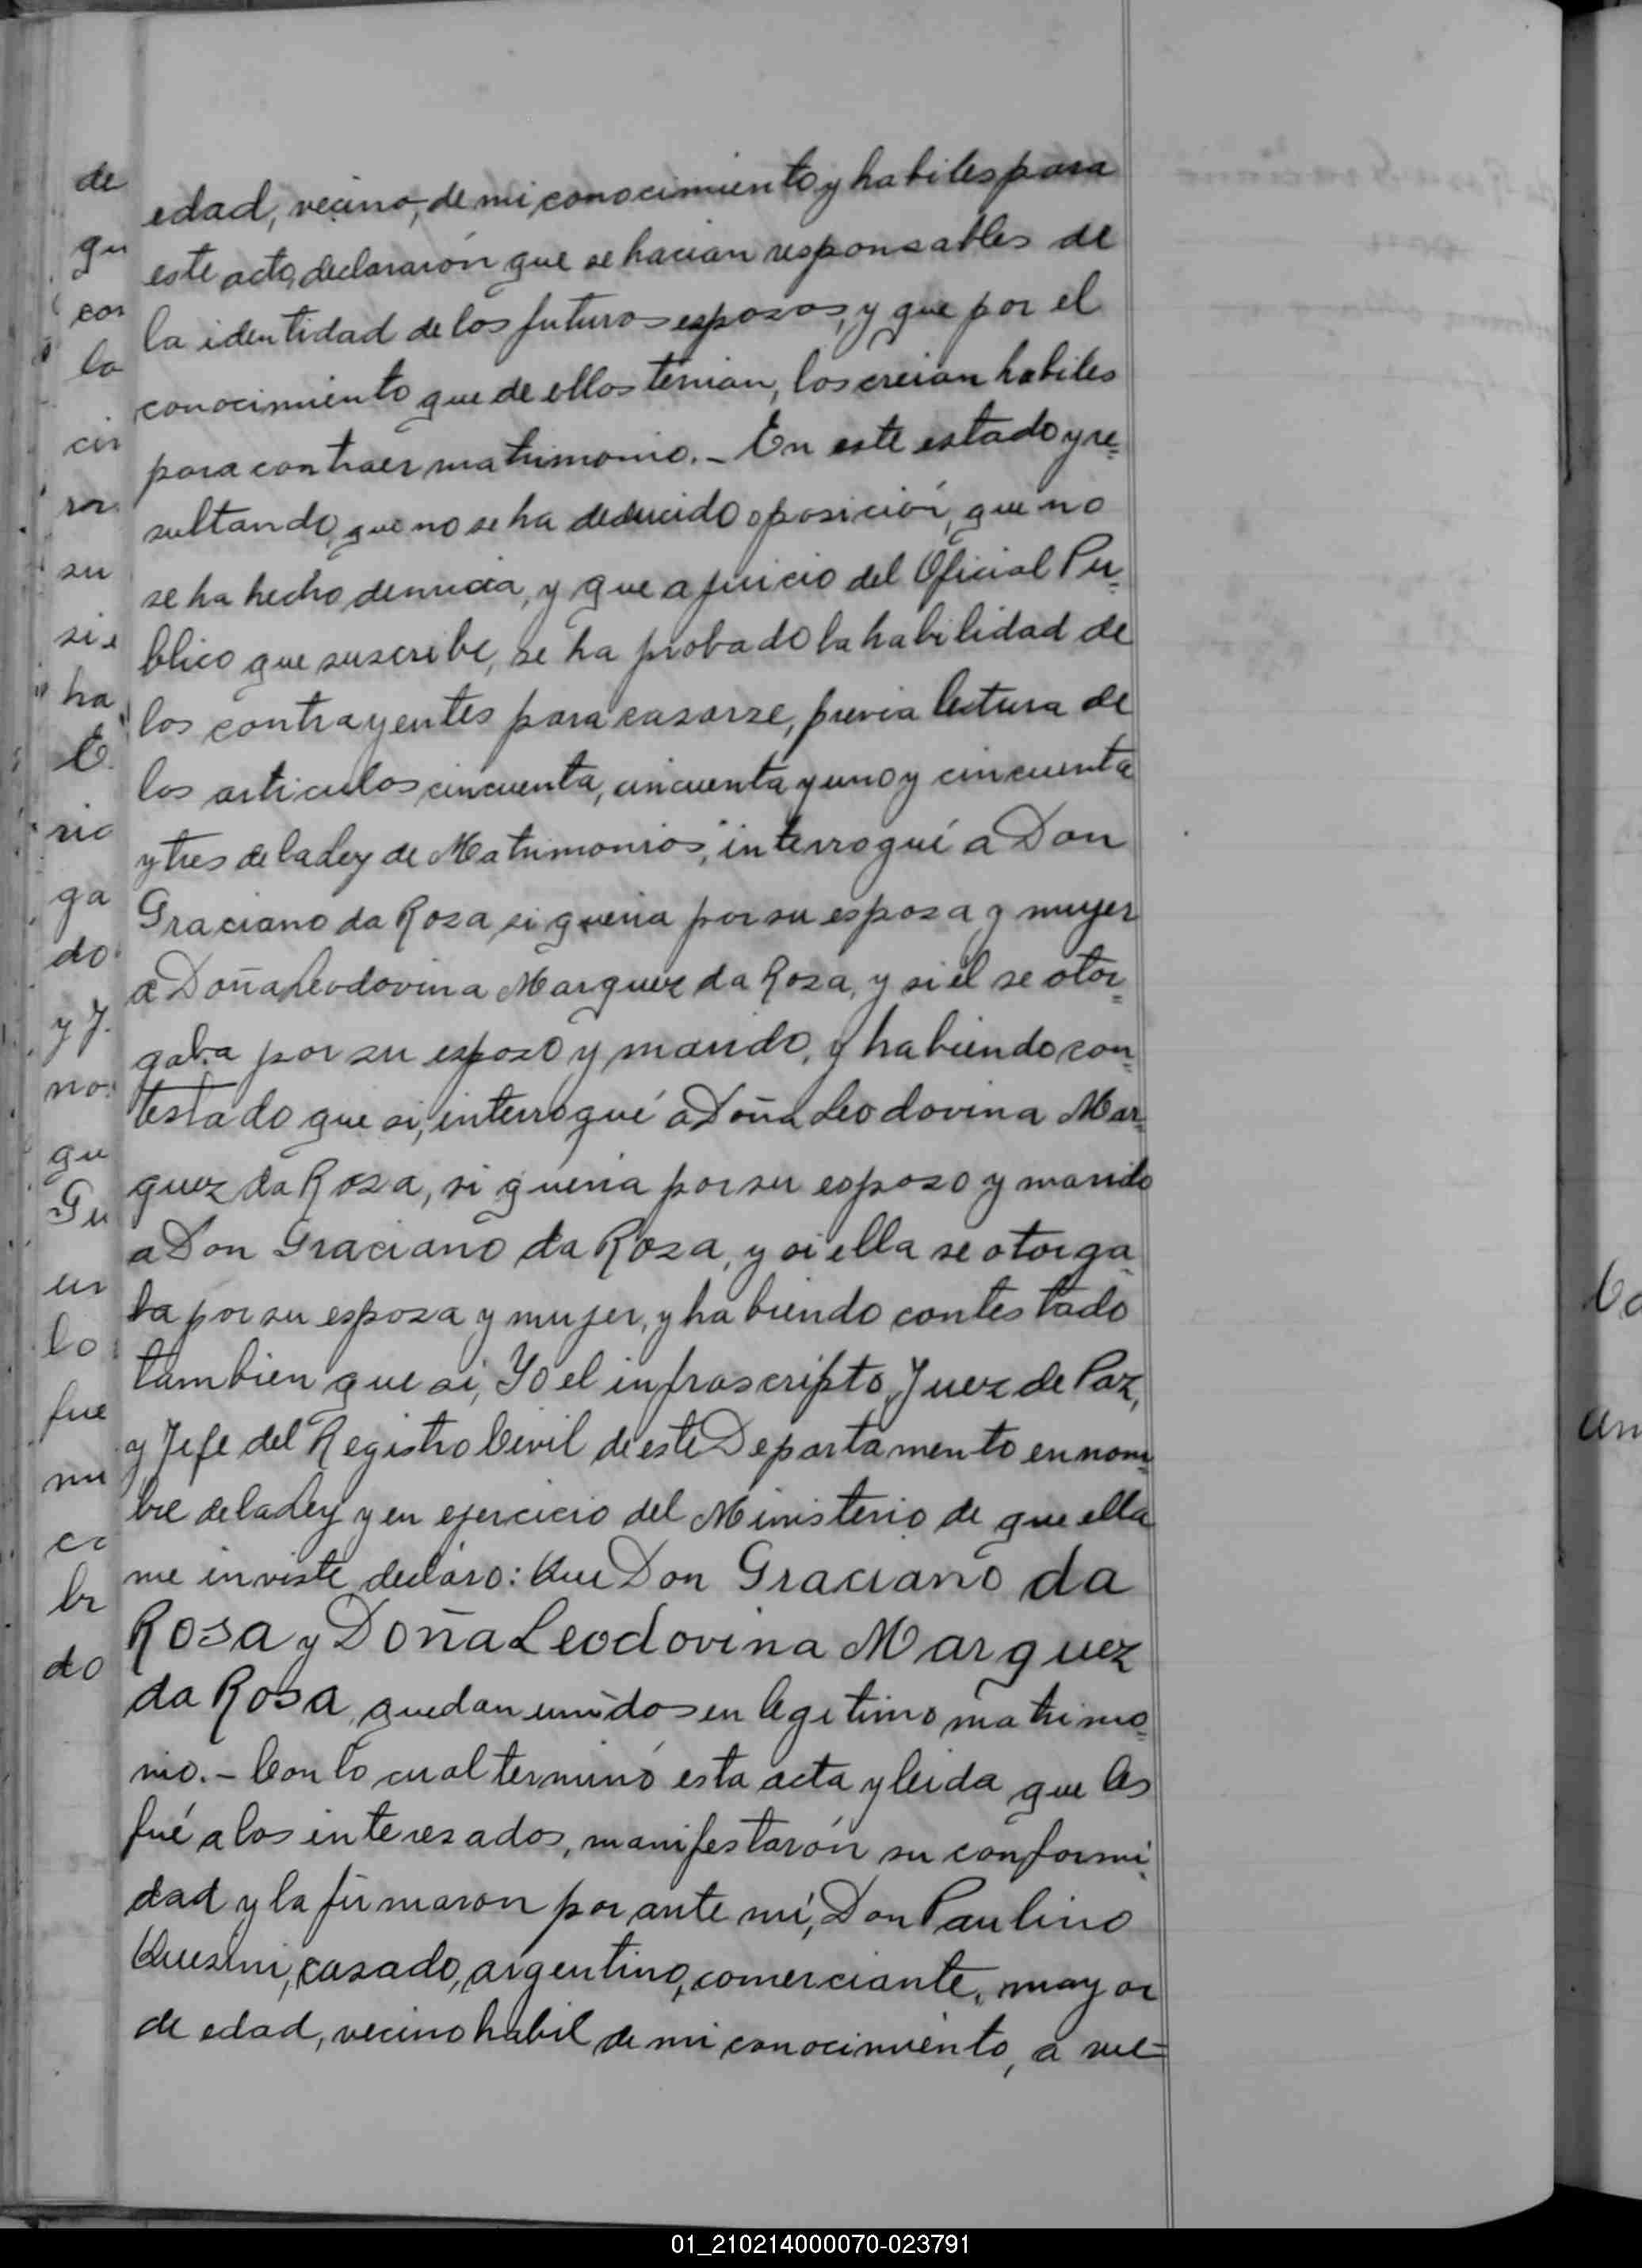 edad, vecino, de mi conocimiento y habiles para
este acto, declararón que se hacian responsables de
la identidad de los futuros esposos, y que por el
conocimiento que de ellos tenian, los creian habiles
para contraer matrimonio.- En este estado y re=
sultando, que no se ha deducido oposición, que no
se ha hecho denucia, y que a juicio del Oficial Pu=
blico que suscribe, se ha probado la habilidad de
los contrayentes para casarse, previa lectura de
los articulos cincuenta, cincuenta y uno y cincuenta
y tres de la Ley de Matrimonios, interrogué a Don
Graciano da Rosa si queria por su esposa y mujer
a Doña Leodovina Marquez da Rosa, y si el se otor=
gaba por su esposo y marido, y habiendo con=
testado que si, interrogué a Doña Leodovina Mar=
quez da Rosa, si queria por su esposo y marido
a Don Graciano da Rosa, y si ella se otorga=
ba por su esposa y mujer, y habiendo contestado
tambien que si, Yo el infrascripto, Juez de Paz,
y Jefe del Registro Civil de este Departamento en nom=
bre de la Ley y en ejercicio del Ministerio de que ella
me inviste, declaro: Que Don Graciano da
Rosa y Doña Leodovina Marquez
da Rosa, quedan unidos en legitimo matrimo=
nio.- Con lo cual terminó esta acta y leida que les
fué a los interesados, manifestarón su conformi=
dad y la firmaron por ante mi, Don Paulino
casado, argentino, comerciante, mayor
de edad, vecino habil de mi conocimiento, a rue=
01_210214000070-023791